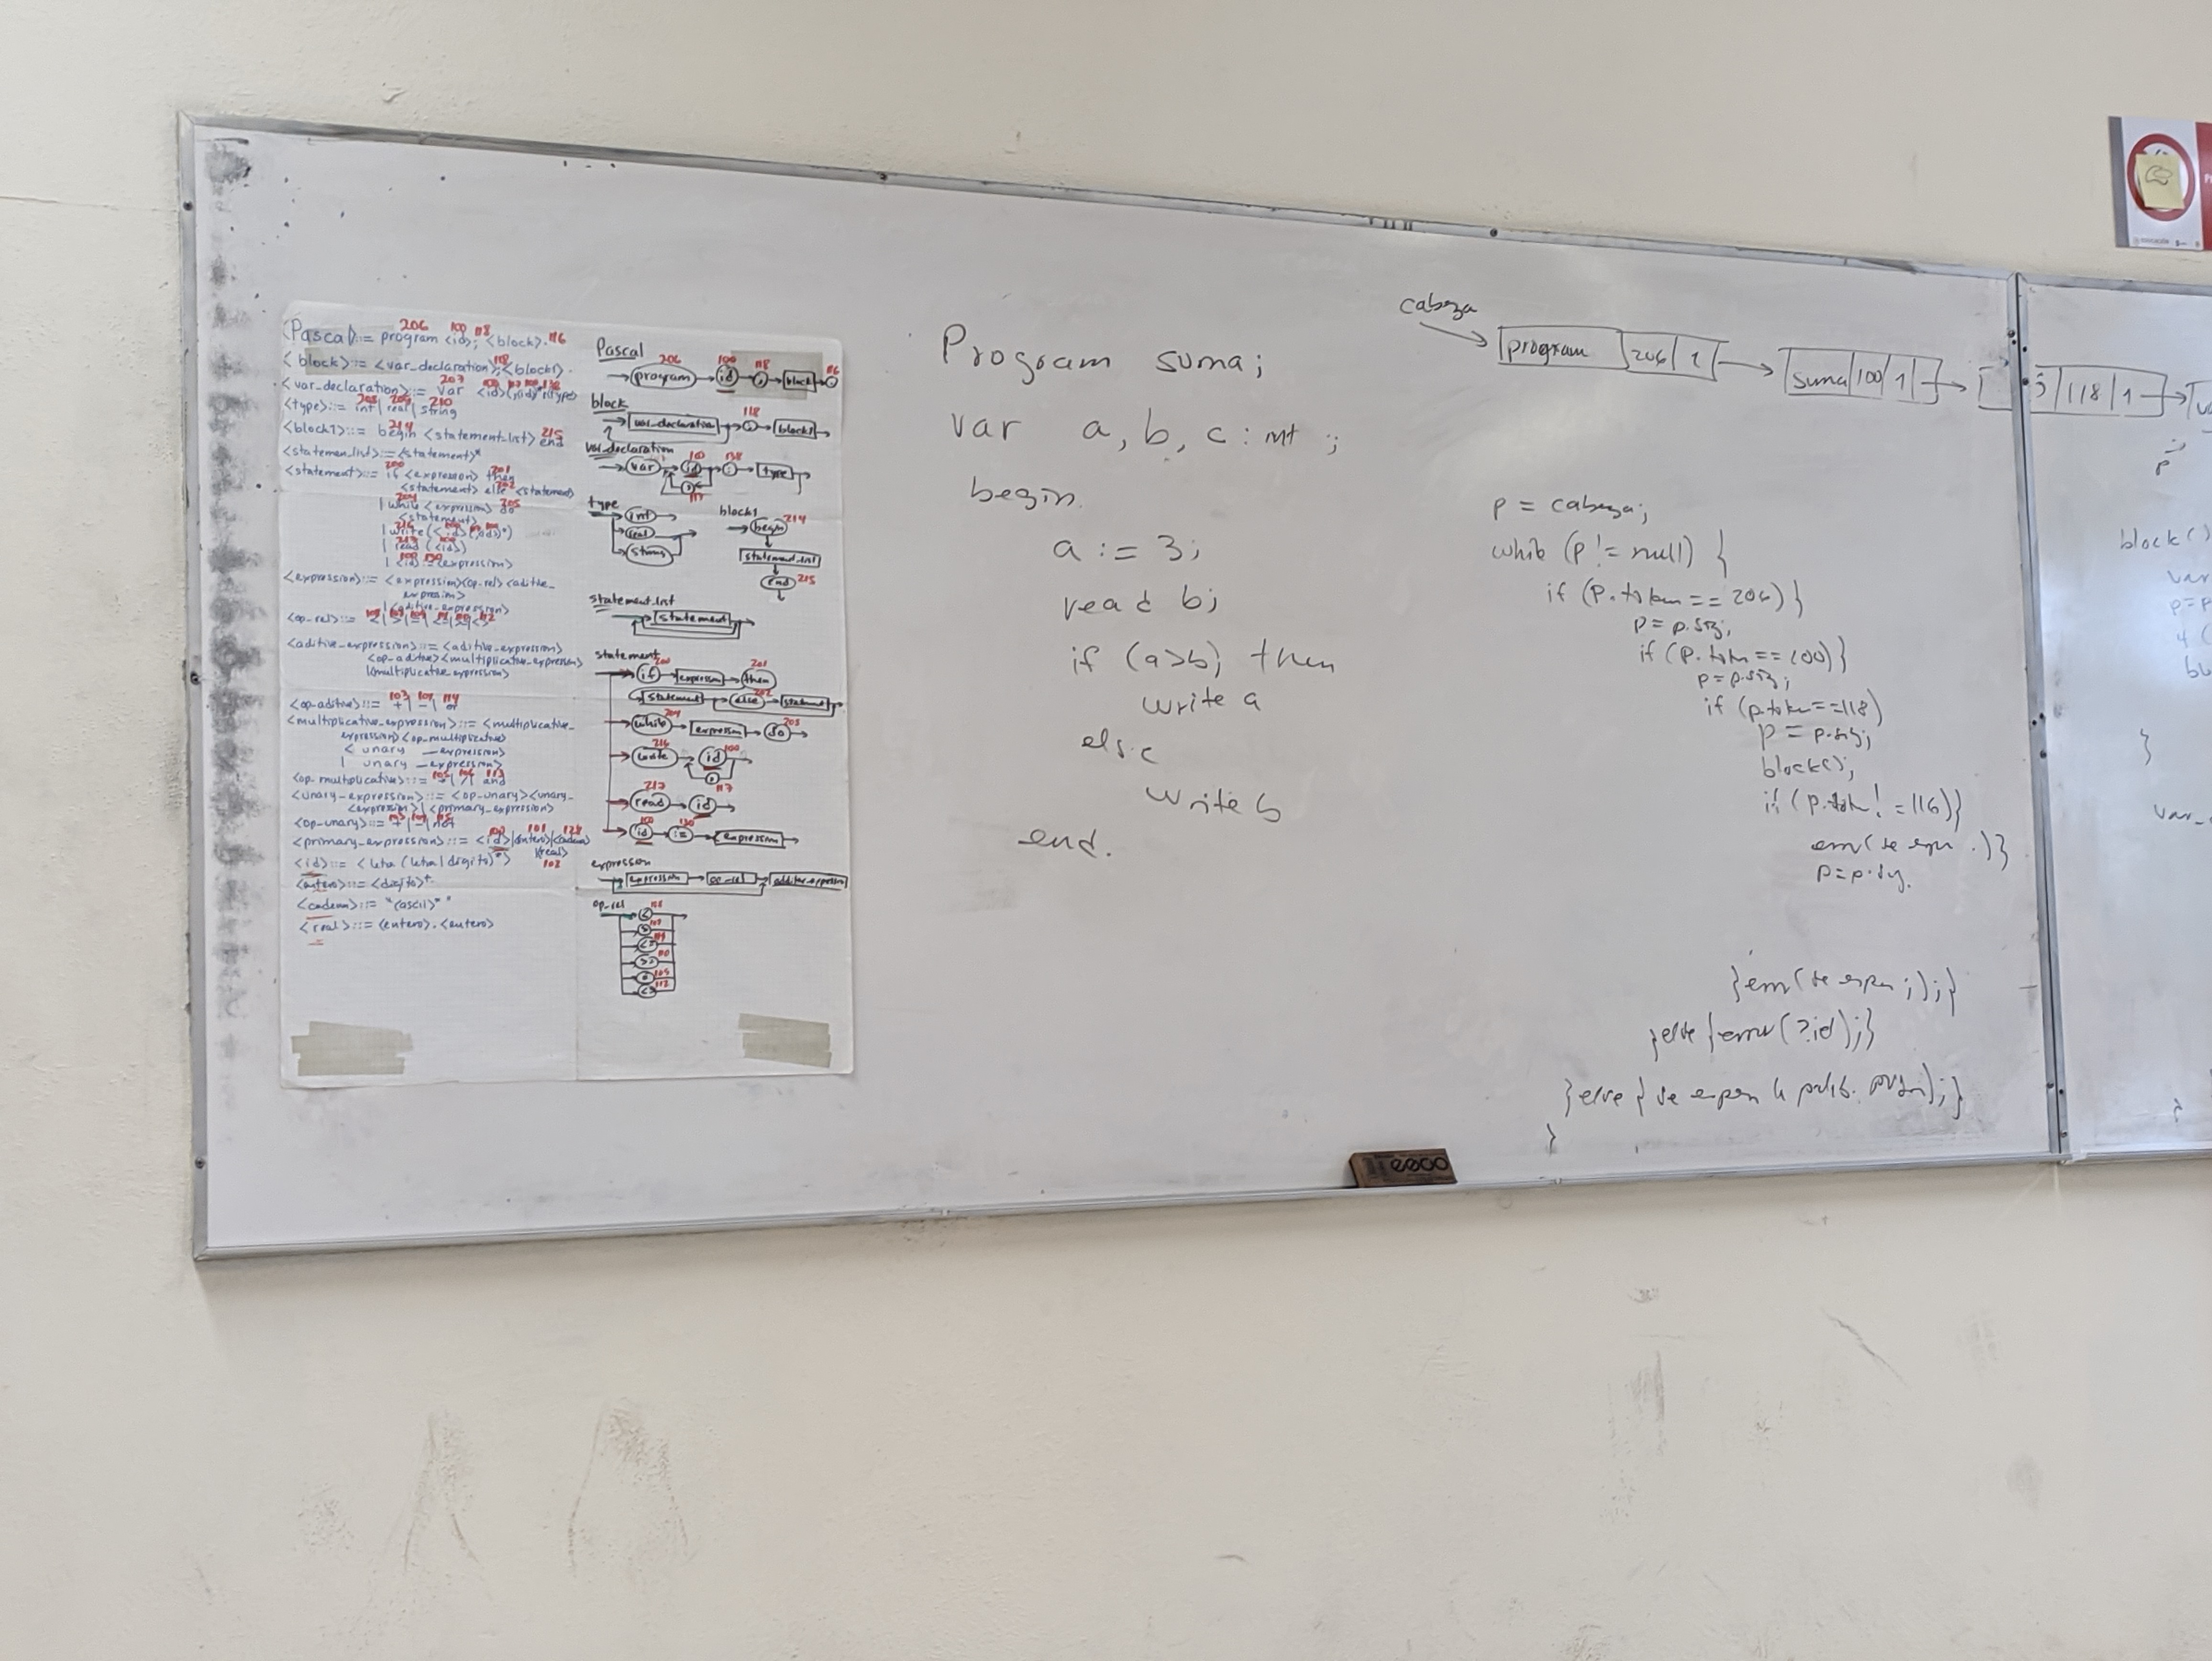 <Pascal>::= program <id>; <block>.
206 100 118 116
<block>::= <var_declaration>;<block1>.
118
<var_declaration>::= var <id>(,<id>)*:<type>
207
<type>::= int | real | string
208 209 210
<block1>::= begin <statement_list> end
214 215
<statemen_list>::= <statement>*
<statement>::= if <expression> then
200 201
<statement> else <statement>
202
| while <expression> do
204 205
<statement>
| write(<id>(,<id>)*)
216
| read (<id>)
217
| <id>:=<expression>
<expression>::= <expression><op-rel><aditive_
expresión>
|<aditive_expression>
<op-rel>::=
<aditive_expression>::= <aditive_expression>
<op_aditive><multiplicative_expression>
|<multiplicative_expression>
<op-aditive>::= + | - | or
103 104 114
<multiplicative_expression>::= <multiplicative_
expression><op_multiplicative>
< unary _expression>
| unary _expression>
<op_multiplicative>::= * | / | and
<unary_expression>::= <op-unary><unary_
<expression>|<primary_expression>
<op-unary>::= + | - | not
<primary_expression>::= <id>|<entero>|<cadena>
|<real>
102
<id>::= <letra (letra|dígito)*>
<entero>::= <dígito>+
<cadena>::= "(ascii)*"
<real>::= <entero>.<entero>
Pascal
206 100 118 116
program id ; block .
block
118
var_declaration ; block1
var_declaration
100 138
var id : type
,
117
type
int
real
string
block1
begin 214
statement_list
end 215
statement_list
statement
statement
200 201
if expression then
202
statement else statement
204 205
while expression do
216 100
write id
,
117
217
read id
100 130
id := expression
expression
expression op-rel additive_expression
op_rel
<
>
<=
>=
=
<>
112
Program suma;
var a, b, c : int ;
begin.
a := 3;
read b;
if (a>b) then
write a
else
write b
end.
cabeza
program 206 1
suma 100 1
; 118 1
p
p = cabeza;
while (p != null) {
if (p.token == 206) {
p = p.sig;
if (p.token == 100) {
p = p.sig;
if (p.token == 118)
p = p.sig;
block();
if (p.token != 116) {
p = p.sig.
}else {error (?id);}
}
block()
var
}
var_